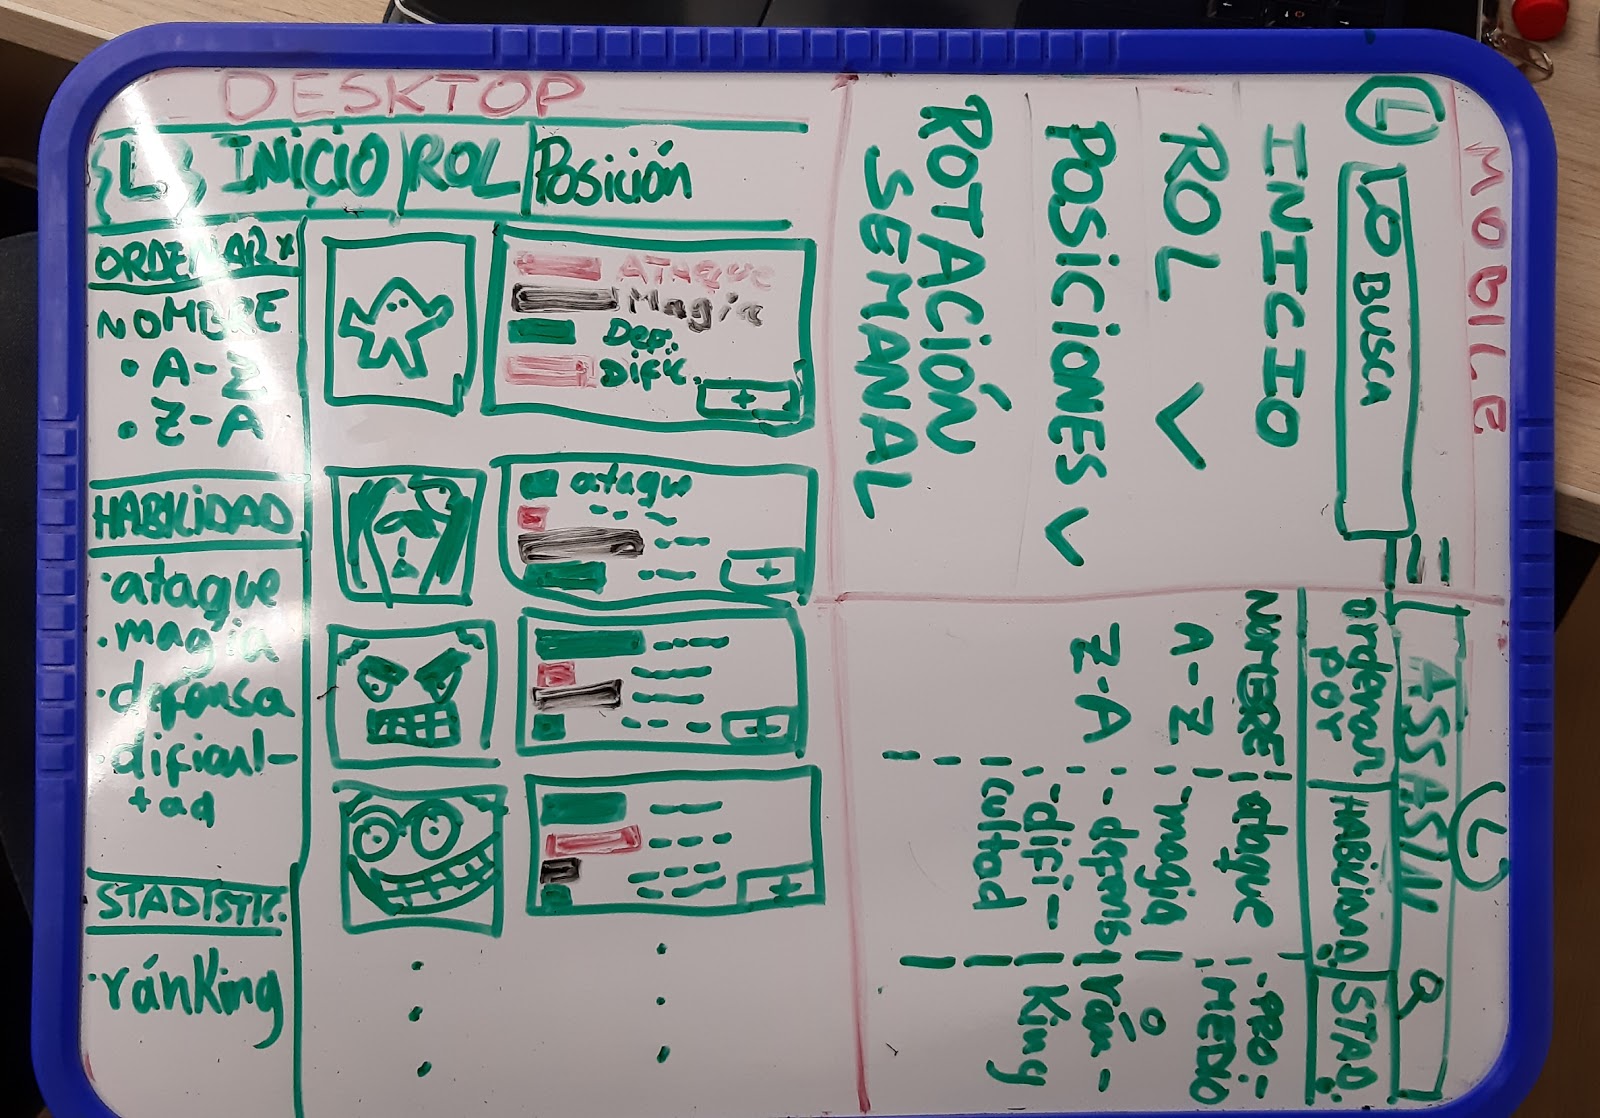 DESKTOP
{L} INICIO ROL Posición
ORDENAR x
NOMBRE
• A-Z
• Z-A
HABILIDAD
·ataque
·magia
·defensa
·dificul-
tad
STADISTIC.
·ránking
ATAQUE
Magia
Def.
Dific.
+
ataqu
+
+
+
MOBILE
L
LO BUSCA
INICIO
ROL V
POSICIONES V
ROTACIÓN
SEMANAL
L
ASSASIN
Ordenar
por
HABILIDAD.
STAD.
NOMBRE
A-Z
Z-A
ataque
-magia
-defensa
-difi-
cultad
·PRO-
MEDIO
o
rán-
king